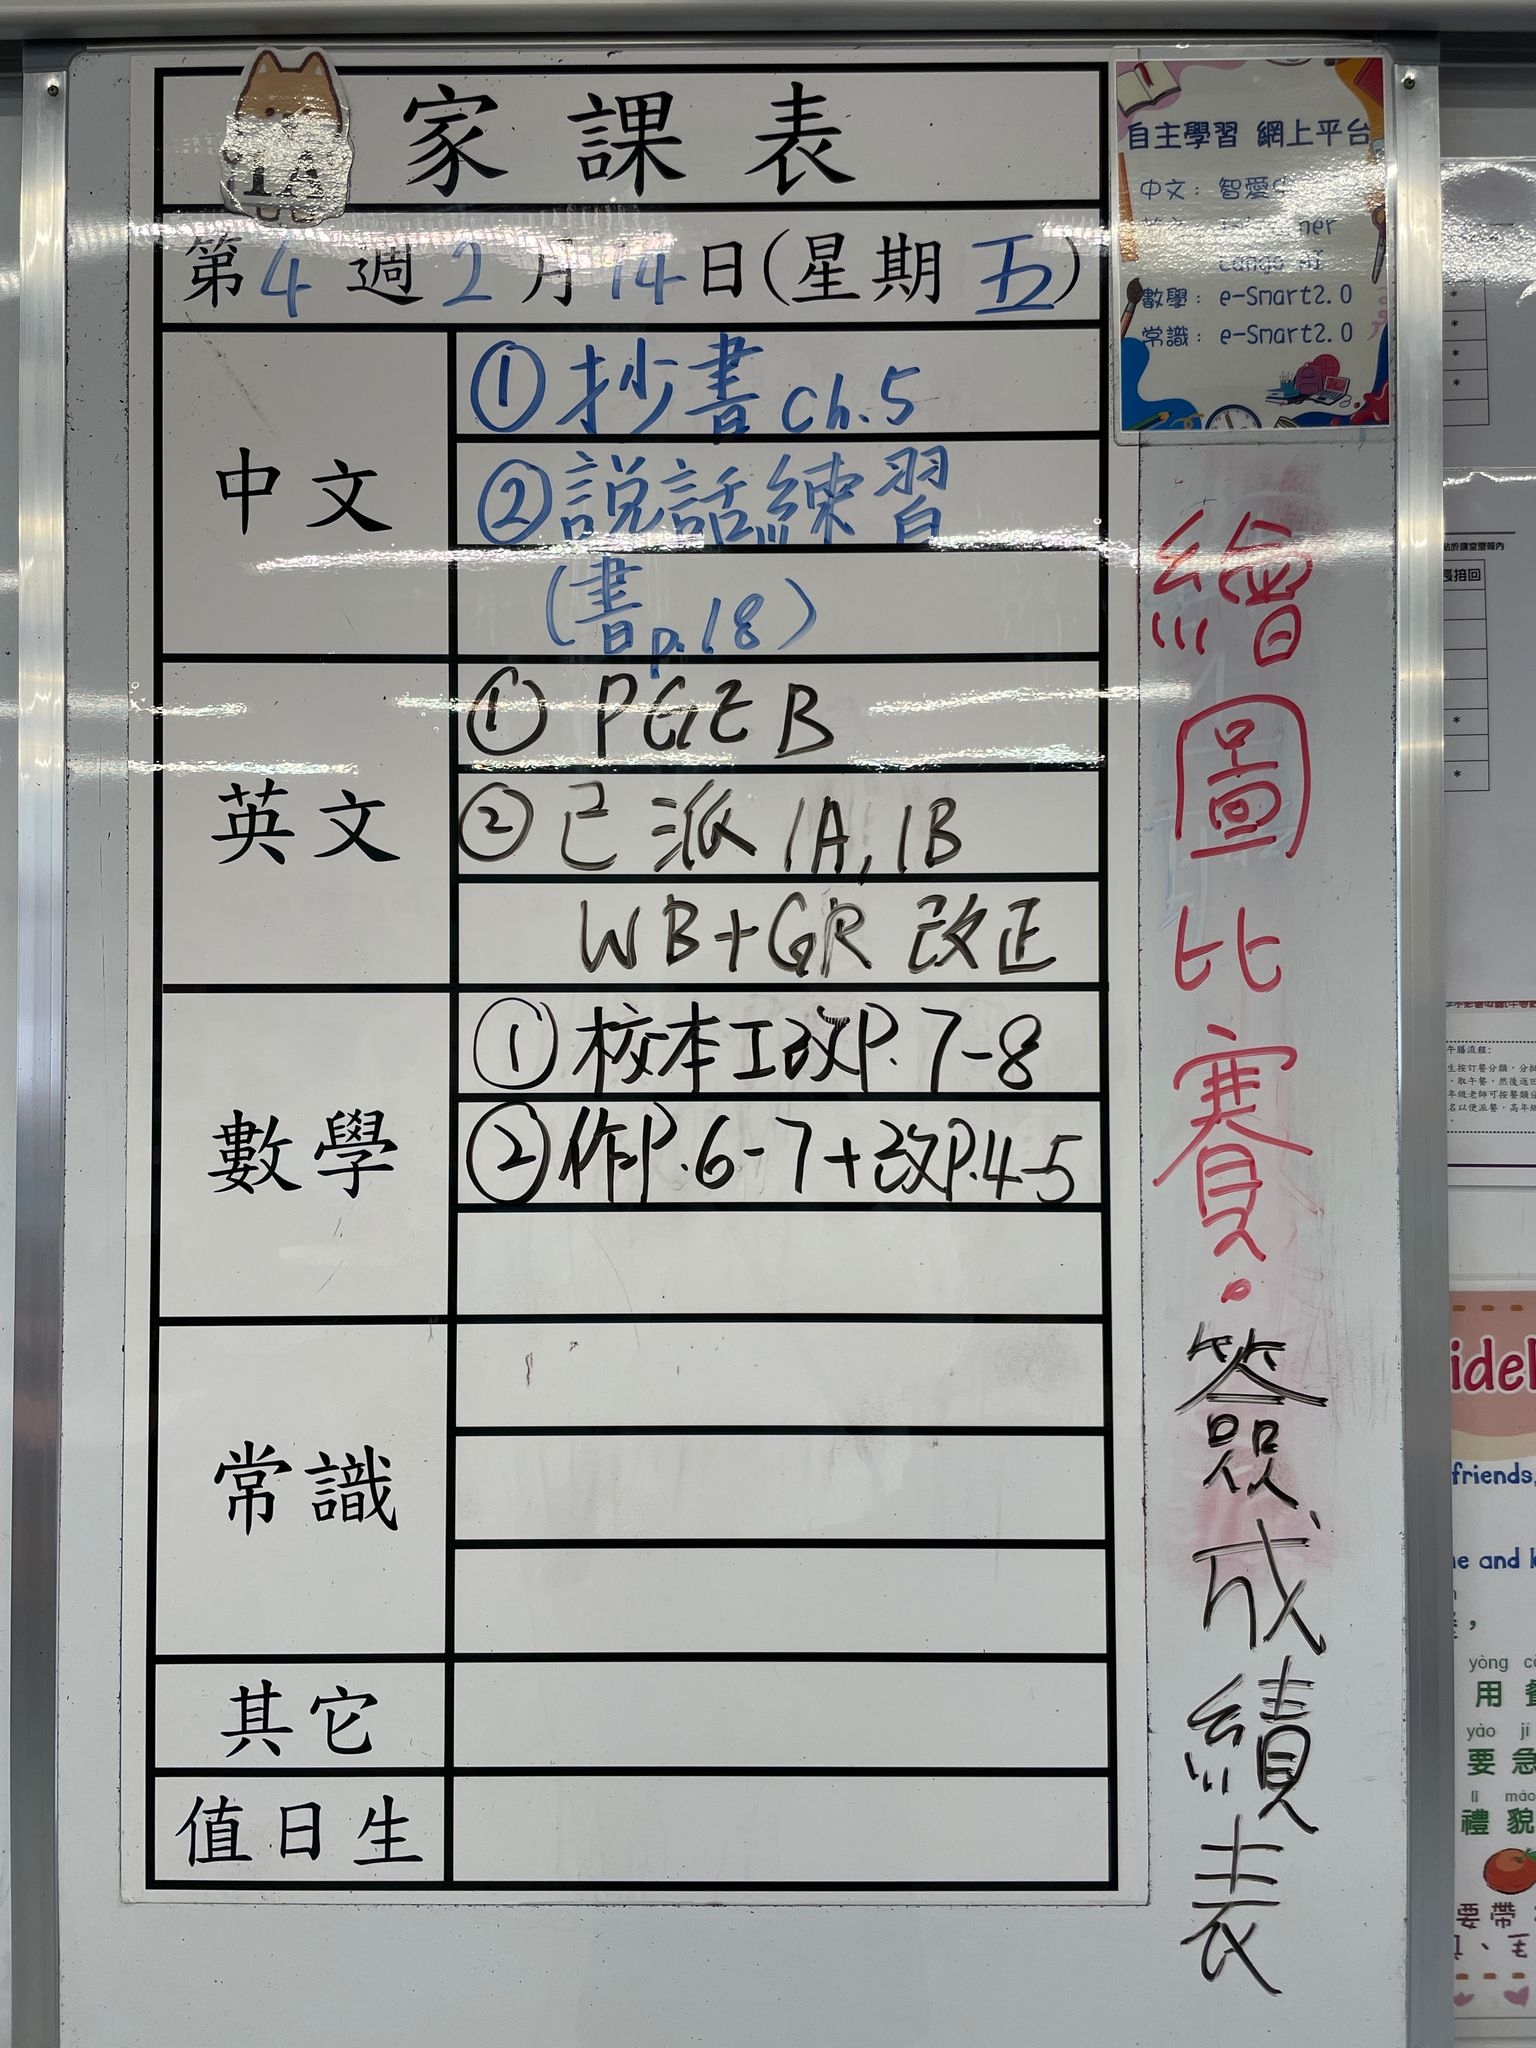 1A
家課表
第4週2月14日(星期五)
中文
①抄書 ch.5
②説話練習
(書p.18)
英文
① PGE B
②已派 1A, 1B
WB+GR 改正
數學
①校本工改P.7-8
②作P.6-7+改P.4-5
常識
其它
值日生
自主學習 網上平台
中文: 智愛
數學: e-Smart2.0
常識: e-Smart2.0
繪圖比賽.
簽成績表
長接回
午膳流程:
friends,
yòng
用
yào jí
要 急
lǐ mào
禮 貌
要帶